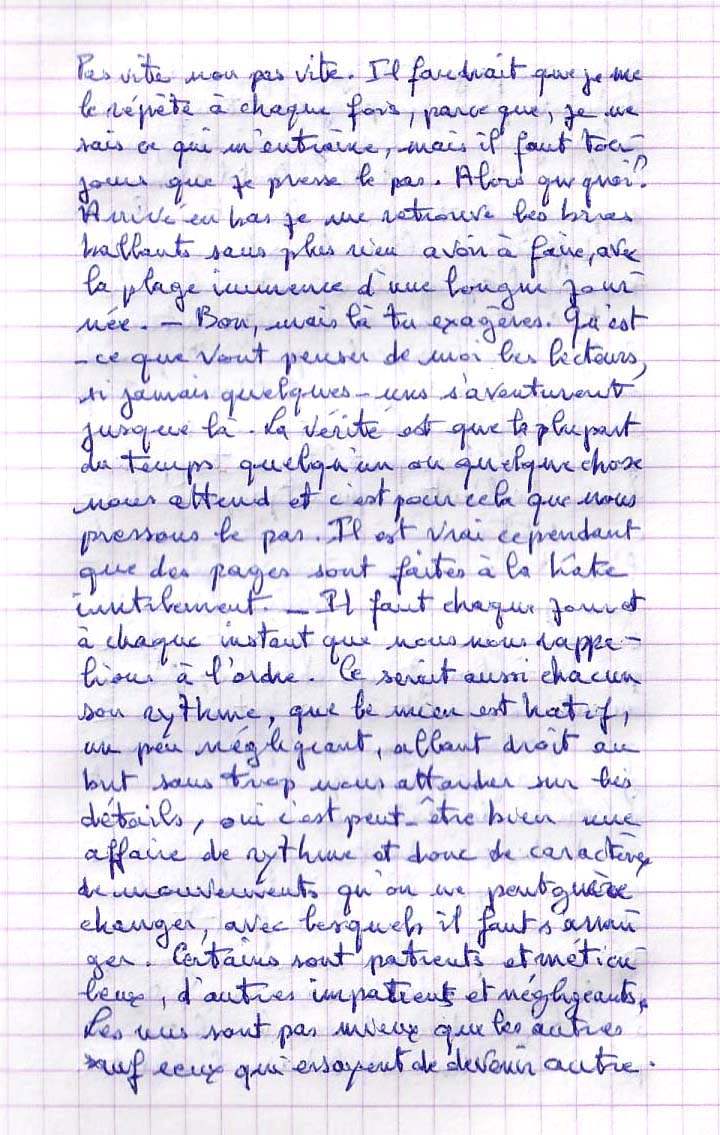 Pas vite non pas vite. Il faudrait que je me
le répète à chaque fois, parce que, je ne
sais ce qui m'entraîne, mais il faut tou-
jours que je presse le pas. Alors que quoi?
Arrivé en bas je me retrouve les bras
ballants sans plus rien avoir à faire, avec
la plage immence d'une longue jour-
née. – Bon, mais là tu exagères. Qu'est
-ce que vont penser de moi les lecteurs,
si jamais quelques-uns s'aventurent
jusque là. La vérité est que la plupart
du temps quelqu'un ou quelque chose
nous attend et c'est pour cela que nous
pressons le pas. Il est vrai cependant
que des pages sont faites à la hâte
inutilement. – Il faut chaque jour et
à chaque instant que nous nous rappe-
lions à l'ordre. Ce serait aussi chacun
son rythme, que le mien est hatif,
un peu négligeant, allant droit au
but sans trop nous attarder sur les
détails, oui c'est peut-être bien une
affaire de rythme et donc de caractère,
de mouvements qu'on ne peut guère
changer, avec lesquels il faut s'arran-
ger. Certains sont patients et méticu-
leux, d'autres impatients et négligeants.
Les uns sont pas mieux que les autres
sauf ceux qui essayent de devenir autre.